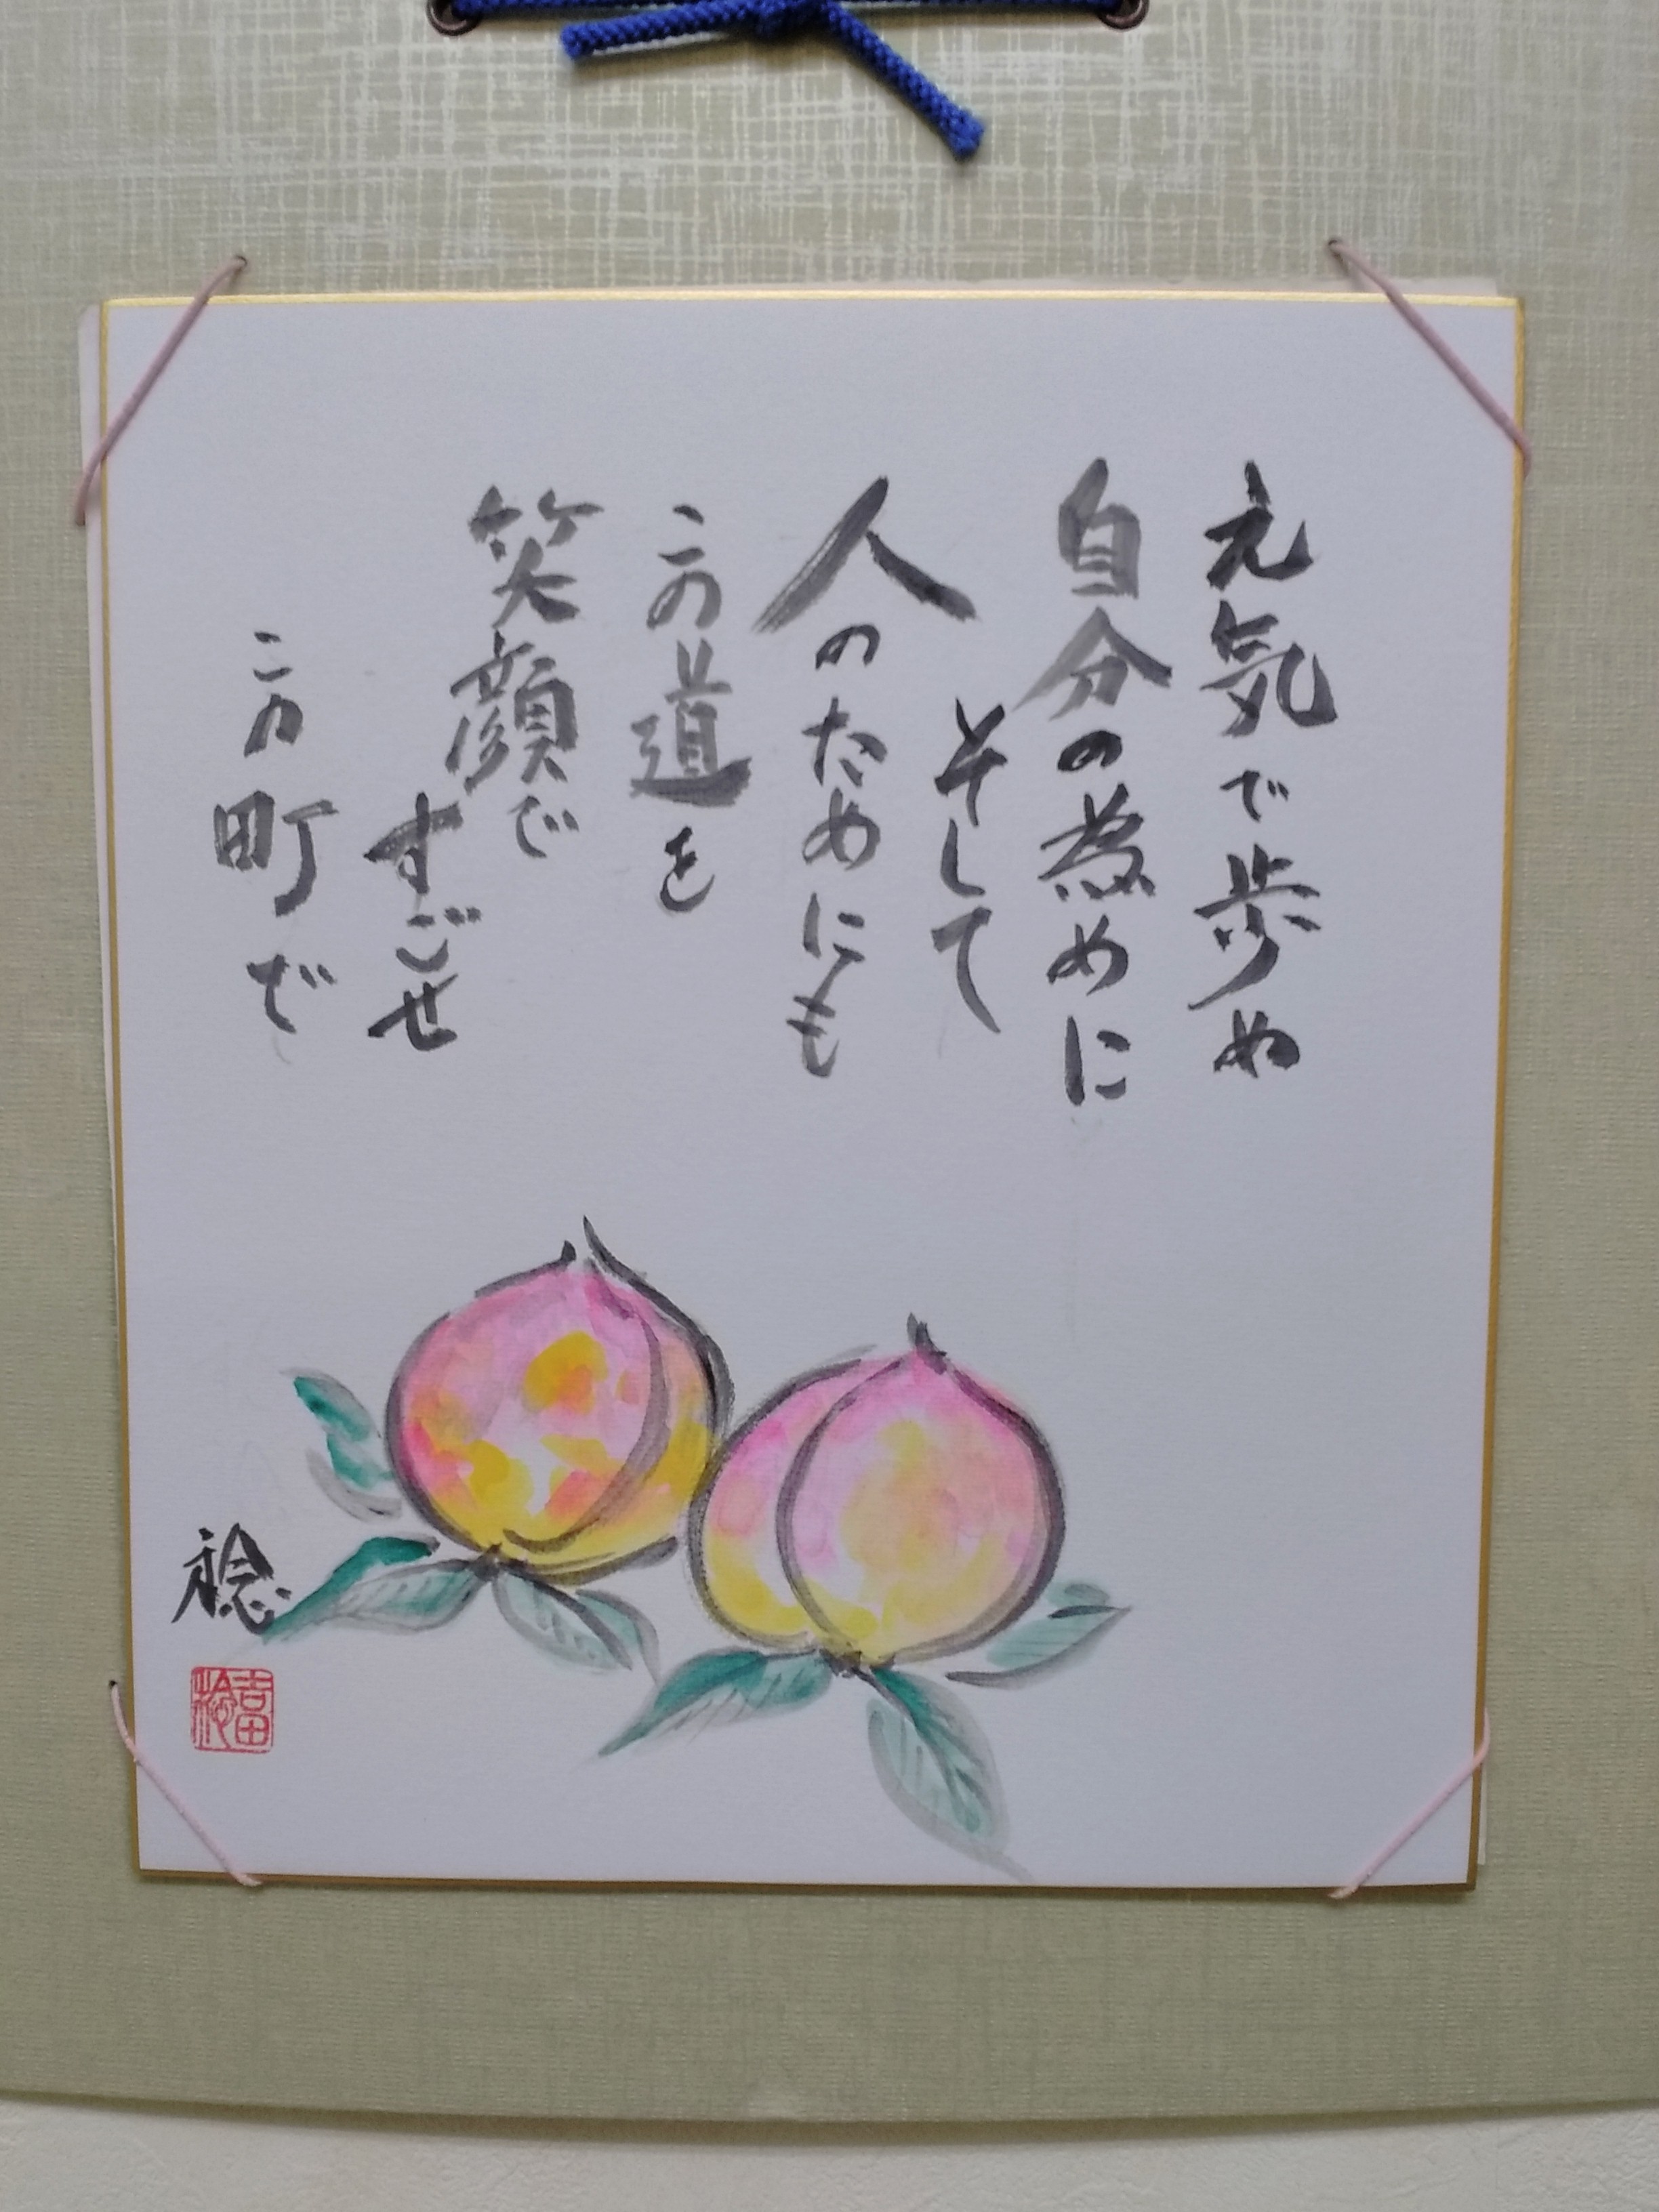 元気で歩め
自分の為めに
そして
人のためにも
この道を
笑顔で
すごせ
この町で
稔
吉田
稔